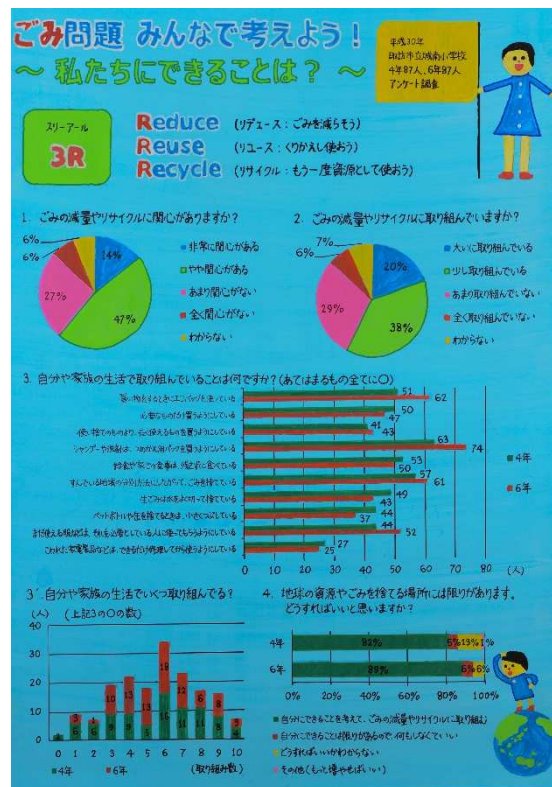 ごみ問題 みんなで考えよう!
～ 私たちにできることは? ～
平成30年
諏訪市立城南小学校
4年87人、6年87人
アンケート調査
スリーアール
3R
Reduce (リデュース:ごみを減らそう)
Reuse (リユース:くりかえし使おう)
Recycle (リサイクル:もう一度資源として使おう)
1. ごみの減量やリサイクルに関心がありますか?
6%
6%
14%
27%
47%
非常に関心がある
やや関心がある
あまり関心がない
全く関心がない
わからない
2. ごみの減量やリサイクルに取り組んでいますか?
7%
6%
20%
29%
38%
大いに取り組んでいる
少し取り組んでいる
あまり取り組んでいない
全く取り組んでいない
わからない
3. 自分や家族の生活で取り組んでいることは何ですか?(あてはまるもの全てに○)
買い物をするときにエコバッグを使っている
必要なものだけ買うようにしている
使い捨てのものより、長く使えるものを買うようにしている
シャンプーや洗剤は、つめかえ用パックを買うようにしている
給食や家での食事は、残さずに食べている
すんでいる地域の分別方法にしたがって、ごみを捨てている
生ごみは水をよく切って捨てている
ペットボトルや缶を捨てるときは、小さくつぶしている
まだ使える物などは、それを必要としている人に使ってもらうようにしている
こわれた家電製品などは、できるだけ修理してから使うようにしている
51
62
50
47
41
43
63
74
53
50
57
61
49
43
44
37
44
52
27
25
4年
6年
0 10 20 30 40 50 60 70 80 (人)
3´. 自分や家族の生活でいくつ取り組んでる?
(人) (上記3の○の数)
40
30
20
10
0
0 1 2 3 4 5 6 7 8 9 10
4年 6年 (取り組み数)
4. 地球の資源やごみを捨てる場所には限りがあります。
どうすればいいと思いますか?
4年 82% 5% 13% 1%
6年 88% 6% 6%
0% 20% 40% 60% 80% 100%
自分にできることを考えて、ごみの減量やリサイクルに取り組む
自分にできることは限りがあるので、何もしなくていい
どうすればいいかわからない
その他(もっと増やせばいい)